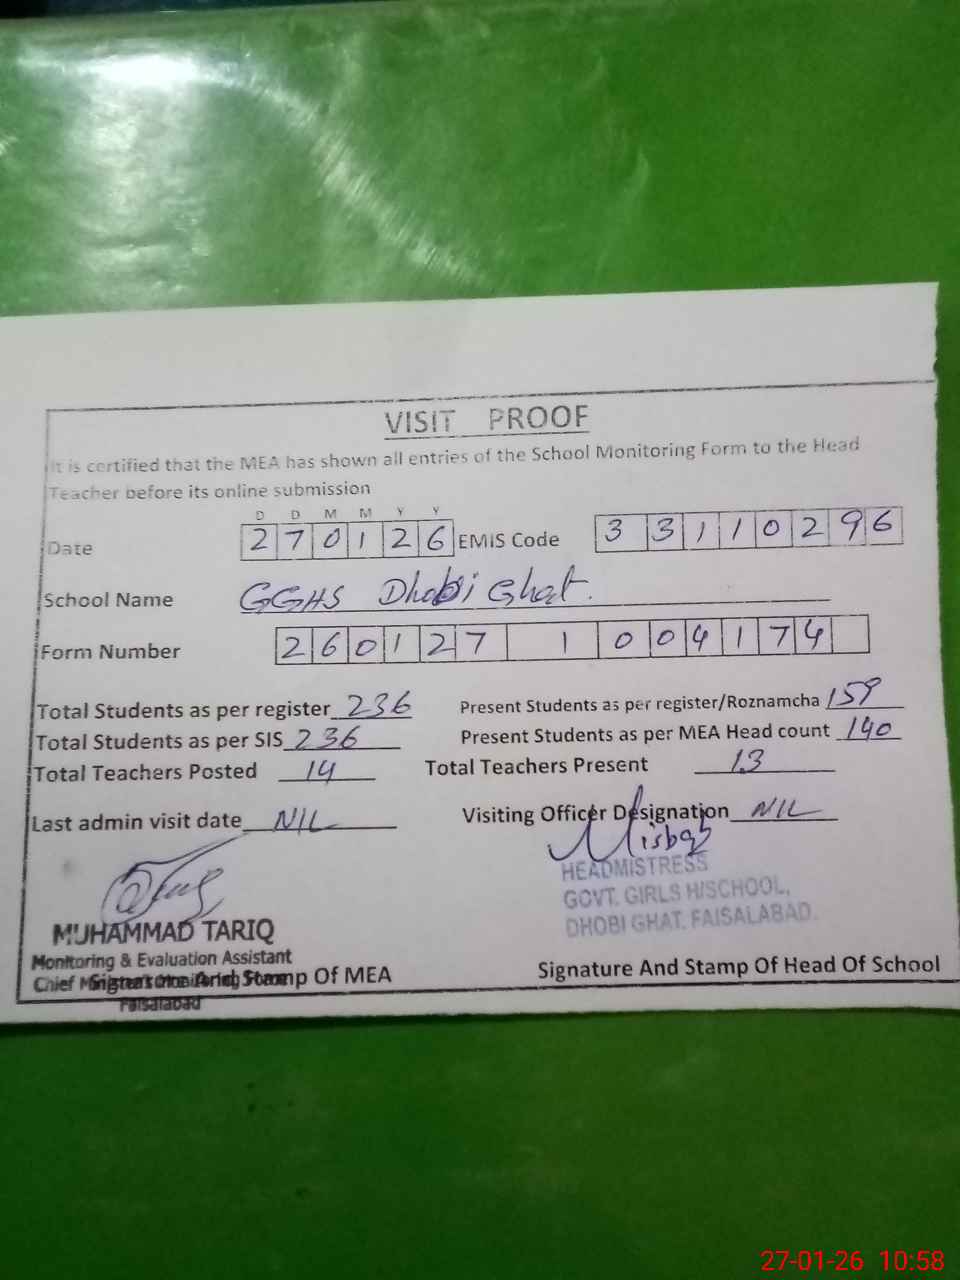 VISIT PROOF
It is certified that the MEA has shown all entries of the School Monitoring Form to the Head
Teacher before its online submission
D D M M Y Y
Date 2 7 0 1 2 6 EMIS Code 3 3 1 1 0 2 9 6
School Name GGHS Dhobi Ghat.
Form Number 2 6 0 1 2 7 1 0 0 4 1 7 4
Total Students as per register 236 Present Students as per register/Roznamcha 159
Total Students as per SIS 236 Present Students as per MEA Head count 140
Total Teachers Posted 14 Total Teachers Present 13
Last admin visit date NIL Visiting Officer Designation NIL
Misbah
HEADMISTRESS
GOVT. GIRLS H/SCHOOL,
DHOBI GHAT, FAISALABAD.
MUHAMMAD TARIQ
Monitoring & Evaluation Assistant
Chief Minister's Monitoring Force
Faisalabad
Signature And Stamp Of MEA Signature And Stamp Of Head Of School
27-01-26 10:58